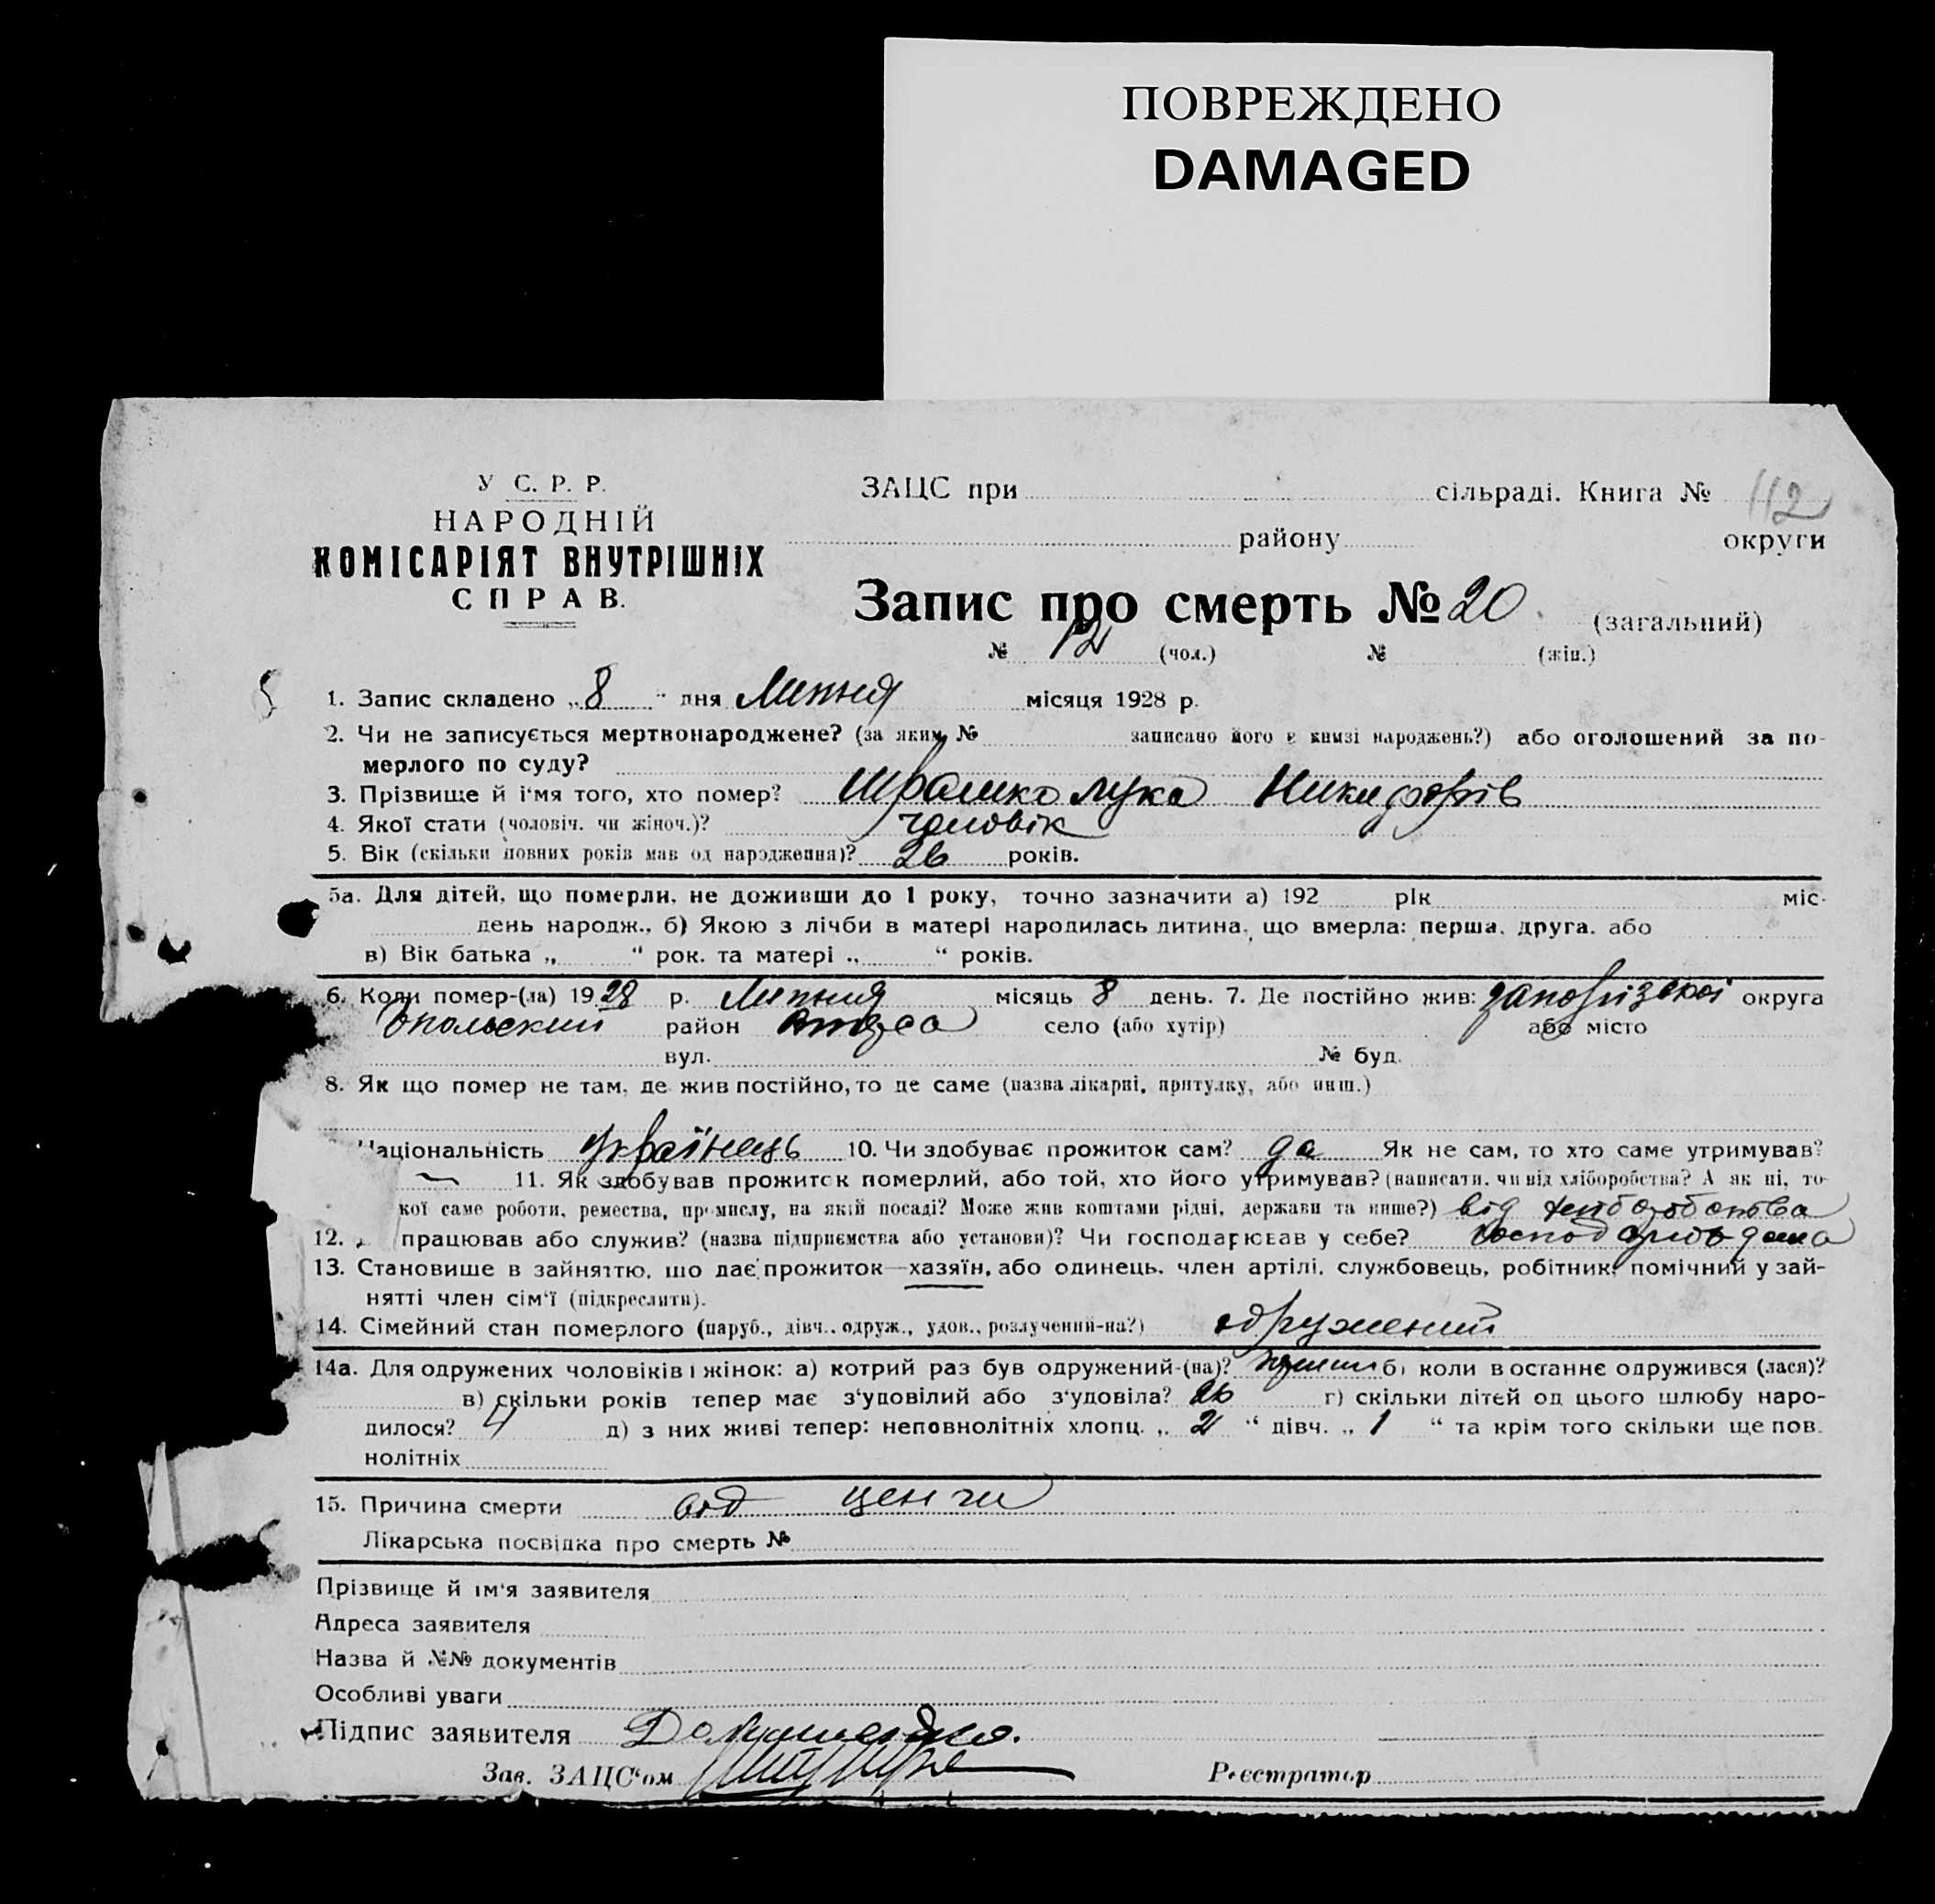 ПОВРЕЖДЕНО
DAMAGED
У С. Р. Р.
НАРОДНІЙ
КОМІСАРІЯТ ВНУТРІШНІХ
СПРАВ.
ЗАЦС при сільраді. Книга № 112
району округи
Запис про смерть № 20 (загальний)
№ 12 (чол.) № (жін.)
1. Запис складено „8“ дня Липня місяця 1928 р.
2. Чи не записується мертвонароджене? (за яким № записано його в книзі народжень?) або оголошений за по-
мерлого по суду?
3. Прізвище й і'мя того, хто помер? Лука Никифорів
4. Якої стати (чоловіч. чи жіноч.)? чоловік
5. Вік (скільки повних років мав од народження)? 26 років.
5а. Для дітей, що померли, не доживши до 1 року, точно зазначити а) 192 рік міс.
день народж., б) Якою з лічби в матері народилась дитина, що вмерла: перша, друга, або
в) Вік батька „ “ рок. та матері „ “ років.
6. Коли помер-(ла) 1928 р. Липня місяць 8 день. 7. Де постійно жив: Запорізскої округа
район село (або хутір) або місто
вул. № буд.
8. Як що помер не там, де жив постійно, то де саме (назва лікарні, притулку, або инш.)
Національність Українець 10. Чи здобуває прожиток сам? да Як не сам, то хто саме утримував?
— 11. Як здобував прожиток померлий, або той, хто його утримував? (написати, чи від хліборобства? А як ні, то
кої саме роботи, ремества, промислу, на якій посаді? Може жив коштами рідні, держави та инше?) від
12. працював або служив? (назва підприємства або установи)? Чи господарював у себе?
13. Становище в зайняттю, що дає прожиток—хазяїн, або одинець, член артілі, службовець, робітник, помічний у зай-
нятті член сім'ї (підкреслити).
14. Сімейний стан померлого (паруб., дівч., одруж., удов., розлучений-на?) одружений
14а. Для одружених чоловіків і жінок: а) котрий раз був одружений-(на)? б) коли востаннє одружився (лася)?
в) скільки років тепер має з'удовілий або з'удовіла? 26 г) скільки дітей од цього шлюбу наро-
дилося? 4 д) з них живі тепер: неповнолітніх хлопц. „2“ дівч. „1“ та крім того скільки ще пов.
нолітніх
15. Причина смерти од
Лікарська посвідка про смерть №
Прізвище й ім'я заявителя
Адреса заявителя
Назва й №№ документів
Особливі уваги
Підпис заявителя
Зав. ЗАЦС'ом Реєстратор